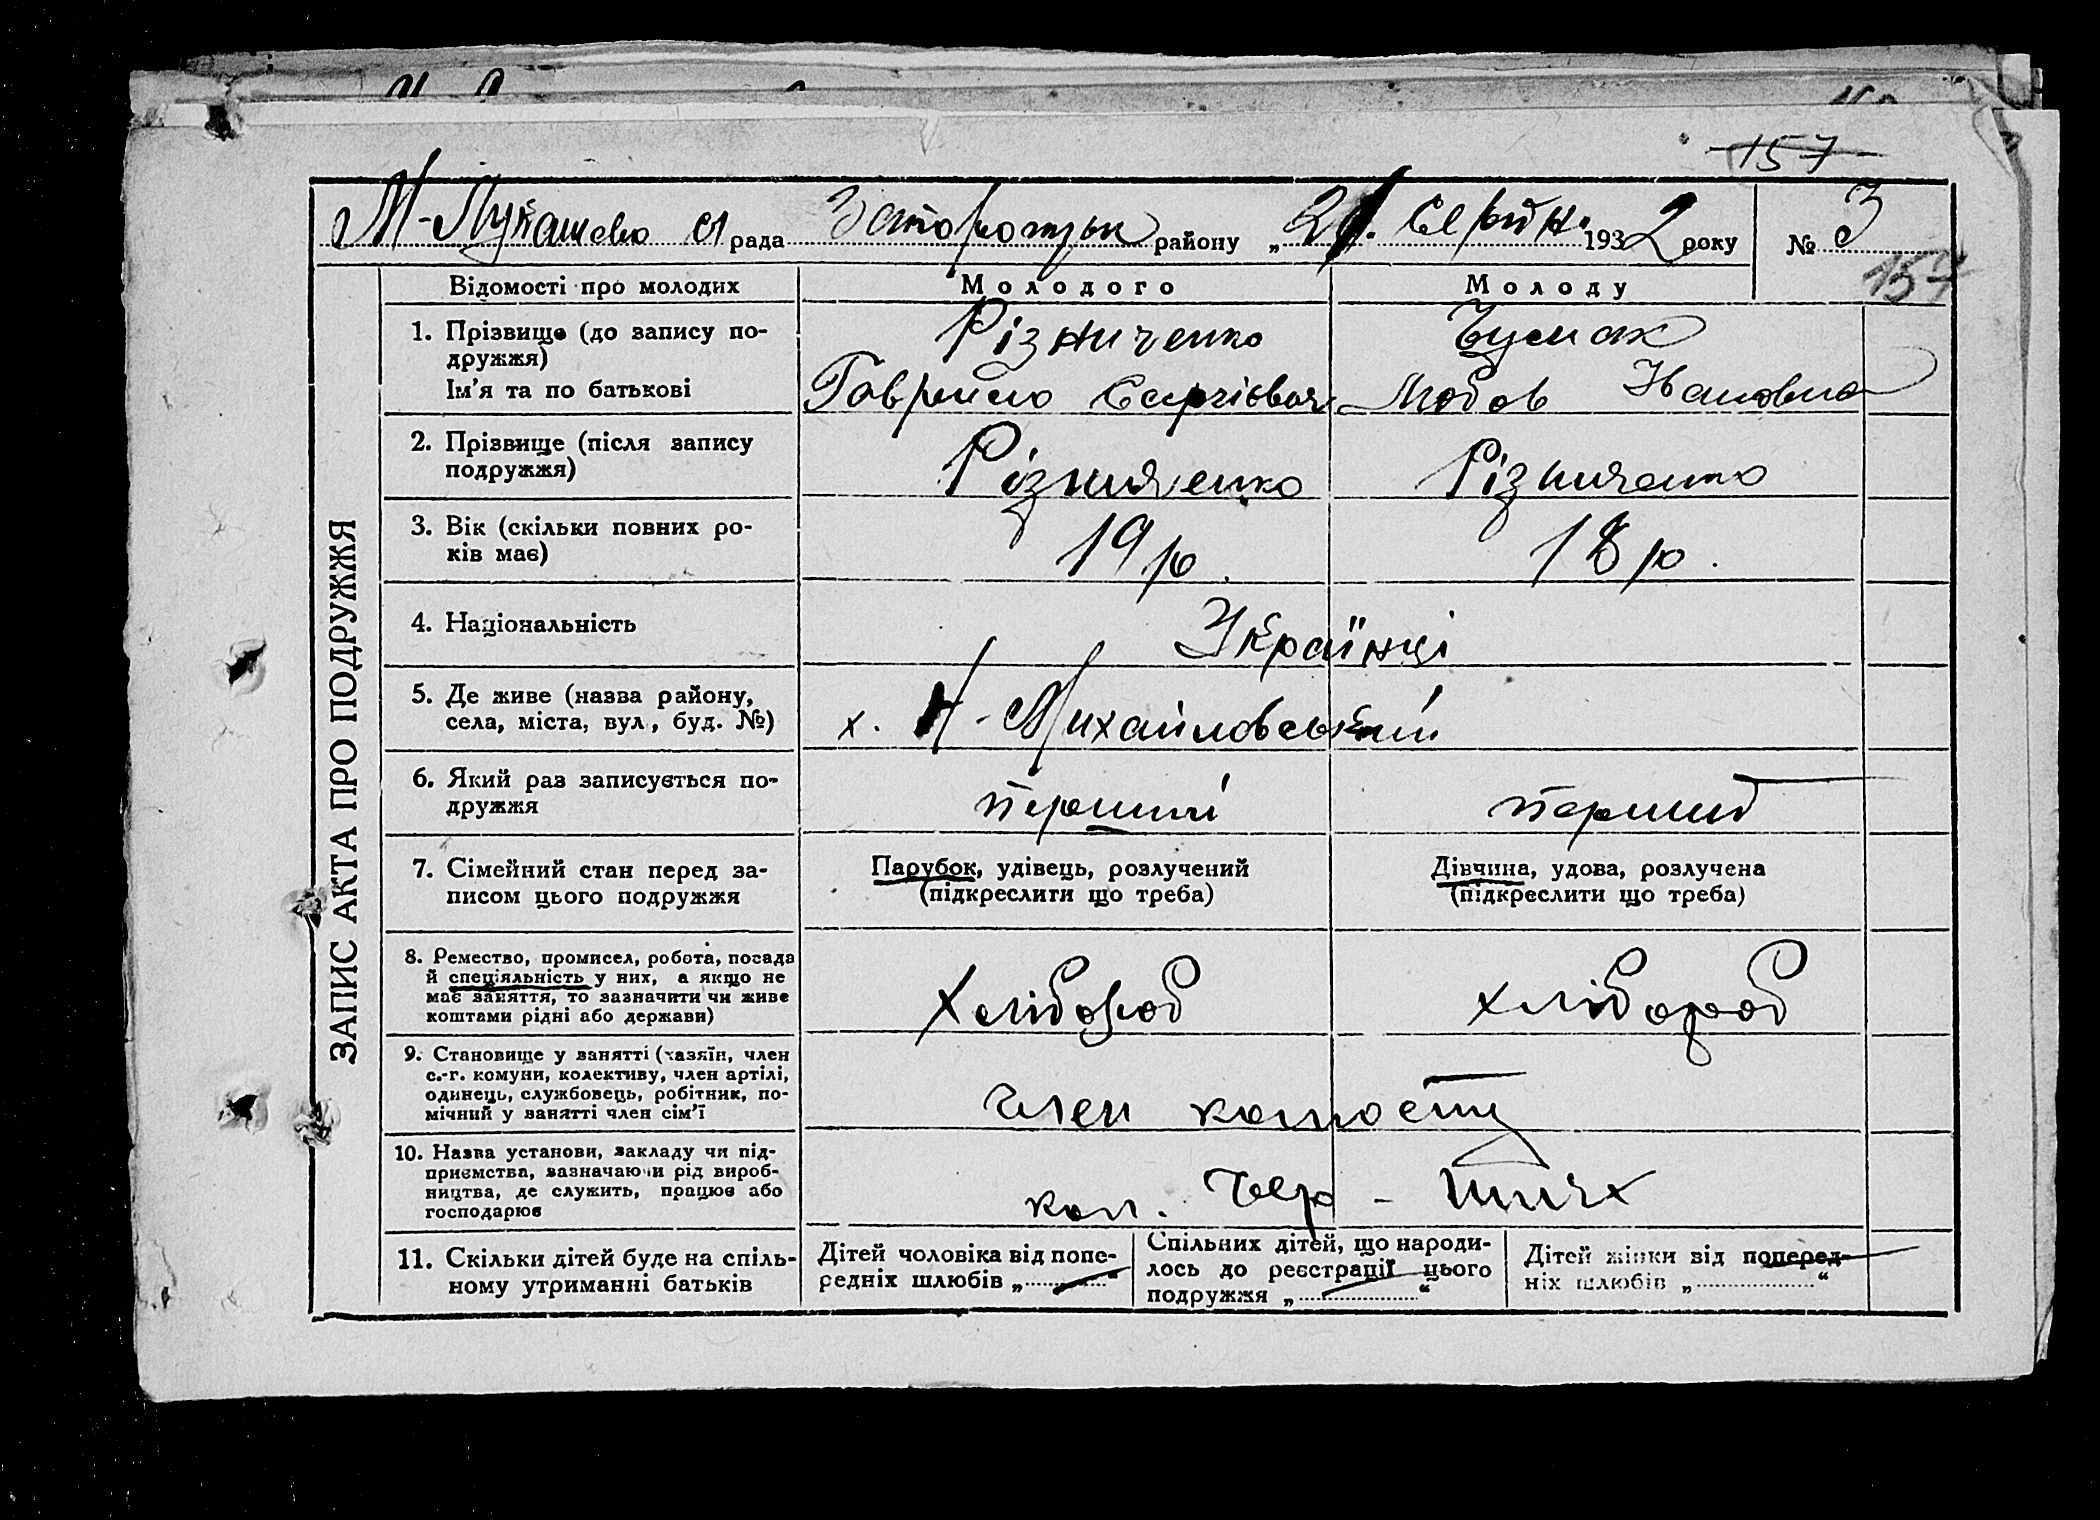 157
М-Лукашево сл рада Запорозьк району „21. Серпн. 1932 року № 3
157
Відомості про молодих Молодого Молоду
1. Прізвище (до запису по-
дружжя) Різниченко Чумак
Ім'я та по батькові Гаврило Сергієвич Любов Івановна
2. Прізвище (після запису
подружжя) Різниченко Різниченко
3. Вік (скільки повних ро-
ків має) 19 р. 18 р.
4. Національність Українці
5. Де живе (назва району,
села, міста, вул., буд. №) х. Н-Михайловський
6. Який раз записується по-
дружжя перший перший
7. Сімейний стан перед за- Парубок, удівець, розлучений Дівчина, удова, розлучена
писом цього подружжя (підкреслити що треба) (підкреслити що треба)
8. Ремество, промисел, робота, посада
й спеціяльність у них, а якщо не
має заняття, то зазначити чи живе
коштами рідні або держави) Хлібороб хлібороб
9. Становище у занятті (хазяїн, член
с.-г. комуни, колективу, член артілі,
одинець, службовець, робітник, по-
мічний у занятті член сім'ї член колгоспу
10. Назва установи, закладу чи під-
приємства, зазначаючи рід вироб-
ництва, де служить, працює або
господарює кол. Чер-Шлях
11. Скільки дітей буде на спіль-
ному утриманні батьків
Дітей чоловіка від попе-
редніх шлюбів „ “
Спільних дітей, що народи-
лось до реєстрації цього
подружжя „ “
Дітей жінки від поперед-
ніх шлюбів „ “
ЗАПИС АКТА ПРО ПОДРУЖЖЯ